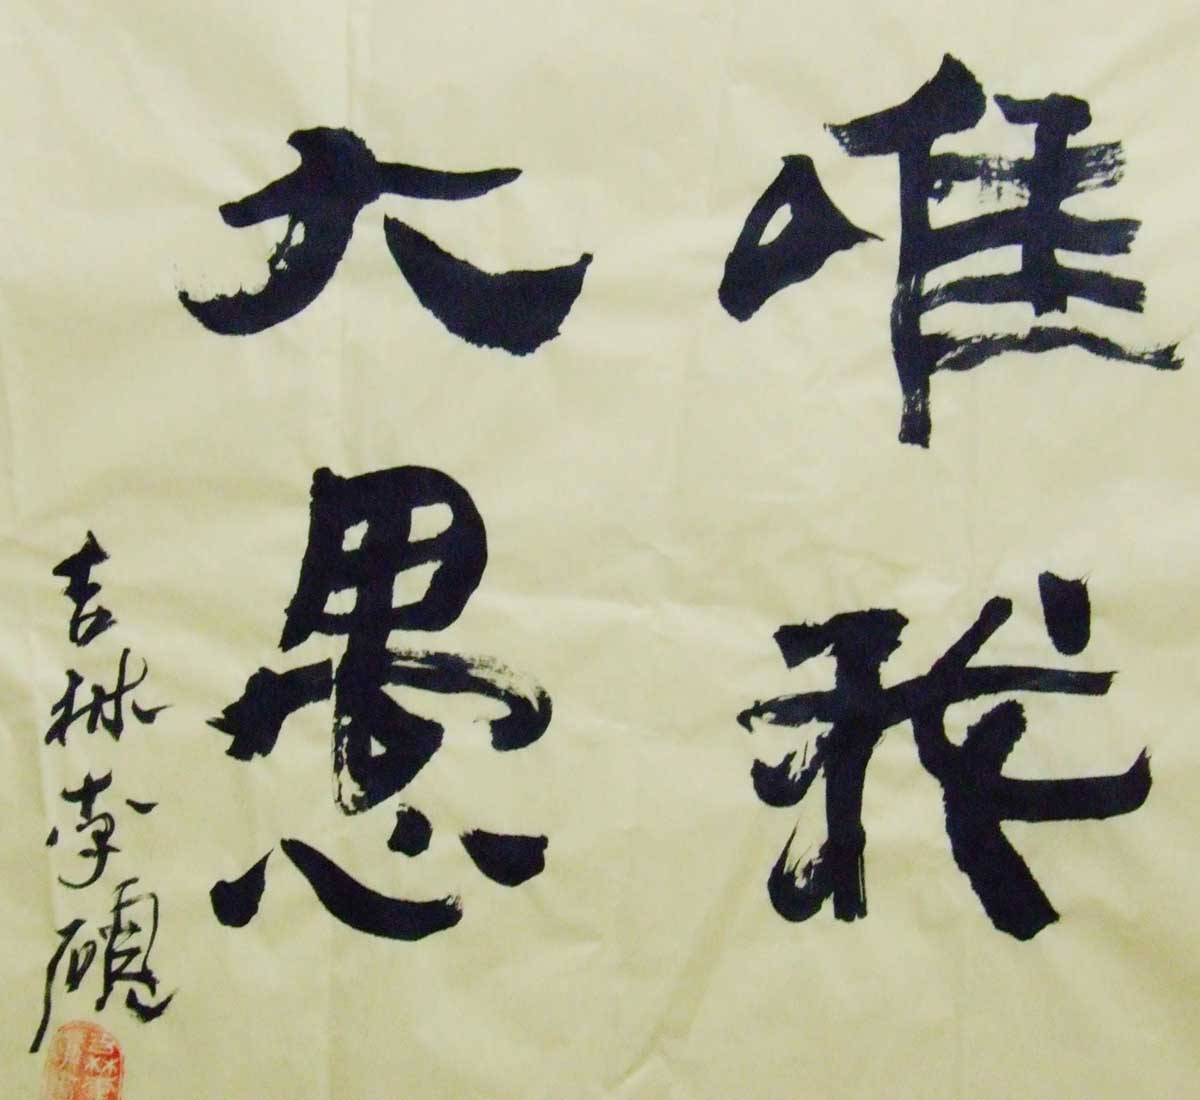 唯我
大愚
吉林李硯